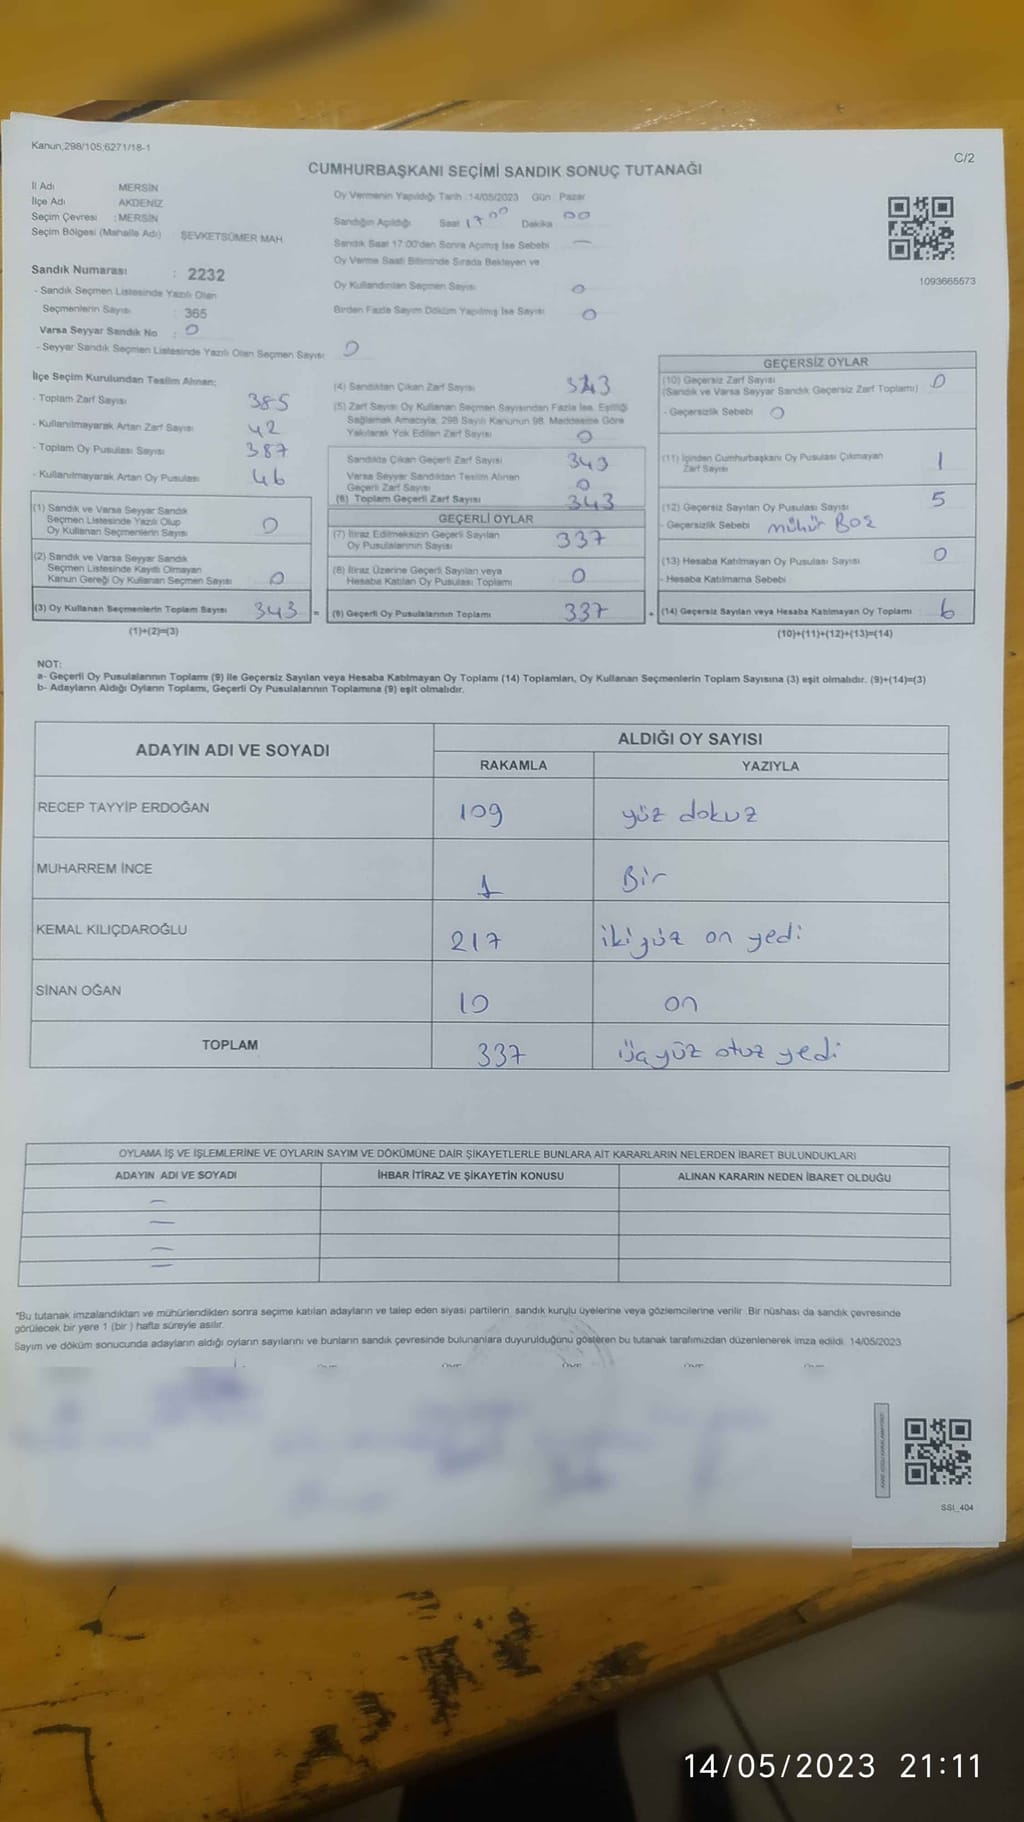 Kanun,298/105,6271/18-1
C/2
CUMHURBAŞKANI SEÇİMİ SANDIK SONUÇ TUTANAĞI
İl Adı MERSİN
İlçe Adı AKDENİZ
Seçim Çevresi : MERSİN
Seçim Bölgesi (Mahalle Adı) ŞEVKETSÜMER MAH.
Sandık Numarası : 2232
- Sandık Seçmen Listesinde Yazılı Olan
Seçmenlerin Sayısı : 365
Varsa Seyyar Sandık No : 0
- Seyyar Sandık Seçmen Listesinde Yazılı Olan Seçmen Sayısı: 0
Oy Vermenin Yapıldığı Tarih :14/05/2023 Gün : Pazar
Sandığın Açıldığı Saat 17 00 Dakika 00
Sandık Saat 17:00'den Sonra Açımış İse Sebebi —
Oy Verme Saati Bitiminde Sırada Bekleyen ve
Oy Kullandırılan Seçmen Sayısı 0
Birden Fazla Sayım Döküm Yapılmış İse Sayısı 0
1093665573
İlçe Seçim Kurulundan Teslim Alınan;
- Toplam Zarf Sayısı 385
- Kullanılmayarak Artan Zarf Sayısı 42
- Toplam Oy Pusulası Sayısı 387
- Kullanılmayarak Artan Oy Pusulası 46
(1) Sandık ve Varsa Seyyar Sandık
Seçmen Listesinde Yazılı Olup
Oy Kullanan Seçmenlerin Sayısı 0
(2) Sandık ve Varsa Seyyar Sandık
Seçmen Listesinde Kayıtlı Olmayan
Kanun Gereği Oy Kullanan Seçmen Sayısı 0
(3) Oy Kullanan Seçmenlerin Toplam Sayısı 343 =
(1)+(2)=(3)
(4) Sandıktan Çıkan Zarf Sayısı 343
(5) Zarf Sayısı Oy Kullanan Seçmen Sayısından Fazla İse, Eşitliği
Sağlamak Amacıyla; 298 Sayılı Kanunun 98. Maddesine Göre
Yakılarak Yok Edilen Zarf Sayısı 0
Sandıkta Çıkan Geçerli Zarf Sayısı 343
Varsa Seyyar Sandıktan Teslim Alınan
Geçerli Zarf Sayısı 0
(6) Toplam Geçerli Zarf Sayısı 343
GEÇERLİ OYLAR
(7) İtiraz Edilmeksizin Geçerli Sayılan
Oy Pusulalarının Sayısı 337
(8) İtiraz Üzerine Geçerli Sayılan veya
Hesaba Katılan Oy Pusulası Toplamı 0
(9) Geçerli Oy Pusulalarının Toplamı 337 +
GEÇERSİZ OYLAR
(10) Geçersiz Zarf Sayısı 0
(Sandık ve Varsa Seyyar Sandık Geçersiz Zarf Toplamı)
- Geçersizlik Sebebi 0
(11) İçinden Cumhurbaşkanı Oy Pusulası Çıkmayan
Zarf Sayısı 1
(12) Geçersiz Sayılan Oy Pusulası Sayısı 5
- Geçersizlik Sebebi mühür BOŞ
(13) Hesaba Katılmayan Oy Pusulası Sayısı 0
- Hesaba Katılmama Sebebi
(14) Geçersiz Sayılan veya Hesaba Katılmayan Oy Toplamı 6
(10)+(11)+(12)+(13)=(14)
NOT:
a- Geçerli Oy Pusulalarının Toplamı (9) ile Geçersiz Sayılan veya Hesaba Katılmayan Oy Toplamı (14) Toplamları, Oy Kullanan Seçmenlerin Toplam Sayısına (3) eşit olmalıdır. (9)+(14)=(3)
b- Adayların Aldığı Oyların Toplamı, Geçerli Oy Pusulalarının Toplamına (9) eşit olmalıdır.
ADAYIN ADI VE SOYADI ALDIĞI OY SAYISI
RAKAMLA YAZIYLA
RECEP TAYYİP ERDOĞAN 109 yüz dokuz
MUHARREM İNCE 1 Bir
KEMAL KILIÇDAROĞLU 217 ikiyüz on yedi
SİNAN OĞAN 10 on
TOPLAM 337 üçyüz otuz yedi
OYLAMA İŞ VE İŞLEMLERİNE VE OYLARIN SAYIM VE DÖKÜMÜNE DAİR ŞİKAYETLERLE BUNLARA AİT KARARLARIN NELERDEN İBARET BULUNDUKLARI
ADAYIN ADI VE SOYADI İHBAR İTİRAZ VE ŞİKAYETİN KONUSU ALINAN KARARIN NEDEN İBARET OLDUĞU
—
—
—
—
*Bu tutanak imzalandıktan ve mühürlendikten sonra seçime katılan adayların ve talep eden siyasi partilerin sandık kurulu üyelerine veya gözlemcilerine verilir. Bir nüshası da sandık çevresinde
görülecek bir yere 1 (bir ) hafta süreyle asılır.
Sayım ve döküm sonucunda adayların aldığı oyların sayılarını ve bunların sandık çevresinde bulunanlara duyurulduğunu gösteren bu tutanak tarafımızdan düzenlenerek imza edildi. 14/05/2023
SSI_404
14/05/2023 21:11